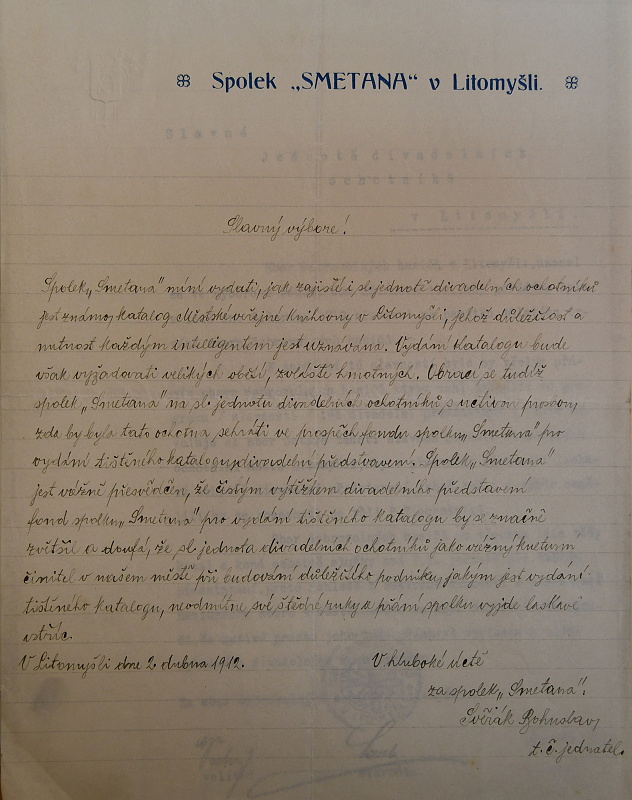 Spolek „SMETANA“ v Litomyšli.
Slavný výbore!
Spolek „Smetana“ míní vydati, jak zajisté i sl. jednotě divadelních ochotníků
jest známo, katalog Městské veřejné knihovny v Litomyšli, jehož důležitost a
nutnost každým intelligentem jest uznávána. Vydání katalogu bude
však vyžadovati velikých obětí, zvláště hmotných. Obrací se tudíž
spolek „Smetana“ na sl. jednotu divadelních ochotníků s uctivou prosbou,
zda by byla tato ochotna sehráti ve prospěch fondu spolku „Smetana“ pro
vydání tištěného katalogu divadelní představení. Spolek „Smetana“
jest vážně přesvědčen, že čistým výtěžkem divadelního představení
fond spolku „Smetana“ pro vydání tištěného katalogu by se značně
zvětšil a doufá, že sl. jednota divadelních ochotníků jako vážný kulturní
činitel v našem městě při budování důležitého podniku, jakým jest vydání
tištěného katalogu, neodmítne své štědré ruky a přání spolku vyjde laskavě
vstříc.
V Litomyšli dne 2. dubna 1912.
V hluboké úctě
za spolek „Smetana“:
Svěrák Bohuslav,
t. č. jednatel.
Slavné
Jednotě divadelních
ochotníků
v Litomyšli